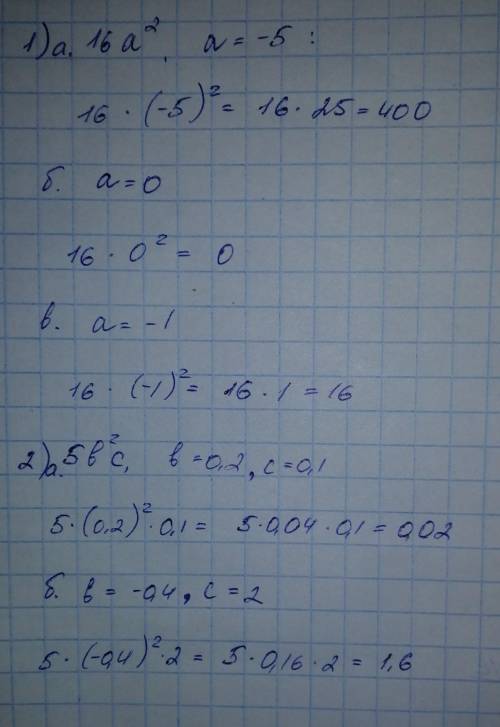 1) а. 16a², a = -5 :
16 · (-5)² = 16 · 25 = 400
б. a = 0
16 · 0² = 0
в. a = -1
16 · (-1)² = 16 · 1 = 16
2) а. 5в²с, в = 0,2, с = 0,1
5 · (0,2)² · 0,1 = 5 · 0,04 · 0,1 = 0,02
б. в = -0,4, с = 2
5 · (-0,4)² · 2 = 5 · 0,16 · 2 = 1,6